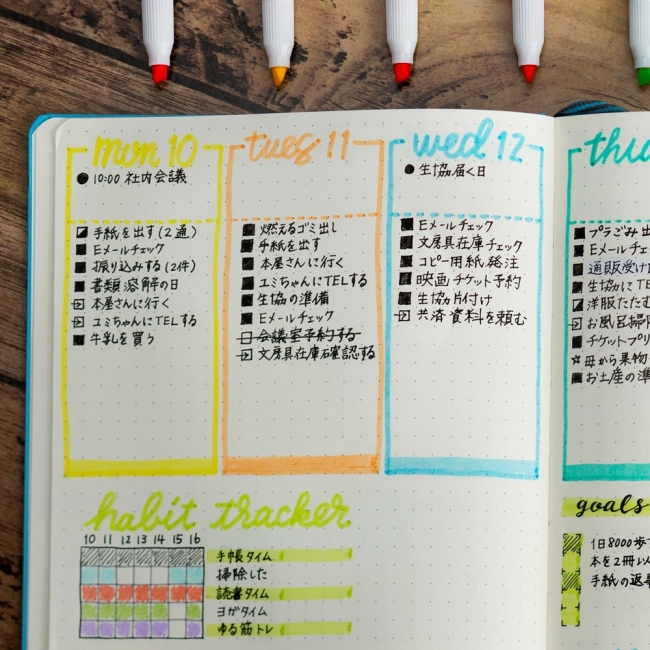 mon 10
10:00 社内会議
手紙を出す(2通)
Eメールチェック
振り込みする(2件)
書類溶解の日
本屋さんに行く
ユミちゃんにTELする
牛乳を買う
tues 11
燃えるゴミ出し
手紙を出す
本屋さんに行く
ユミちゃんにTELする
生協の準備
Eメールチェック
会議室予約する
文房具在庫確認する
wed 12
生協届く日
Eメールチェック
文房具在庫チェック
コピー用紙発注
映画チケット予約
生協片付け
共済資料を頼む
thu
プラごみ出
Eメールチェ
通販受け
生協にTE
洋服たたむ
お風呂掃
チケットプリ
母から果物
お土産の準
habit tracker
10 11 12 13 14 15 16
手帳タイム
掃除した
読書タイム
ヨガタイム
ゆる筋トレ
goals
1日8000歩
本を2冊以
手紙の返事